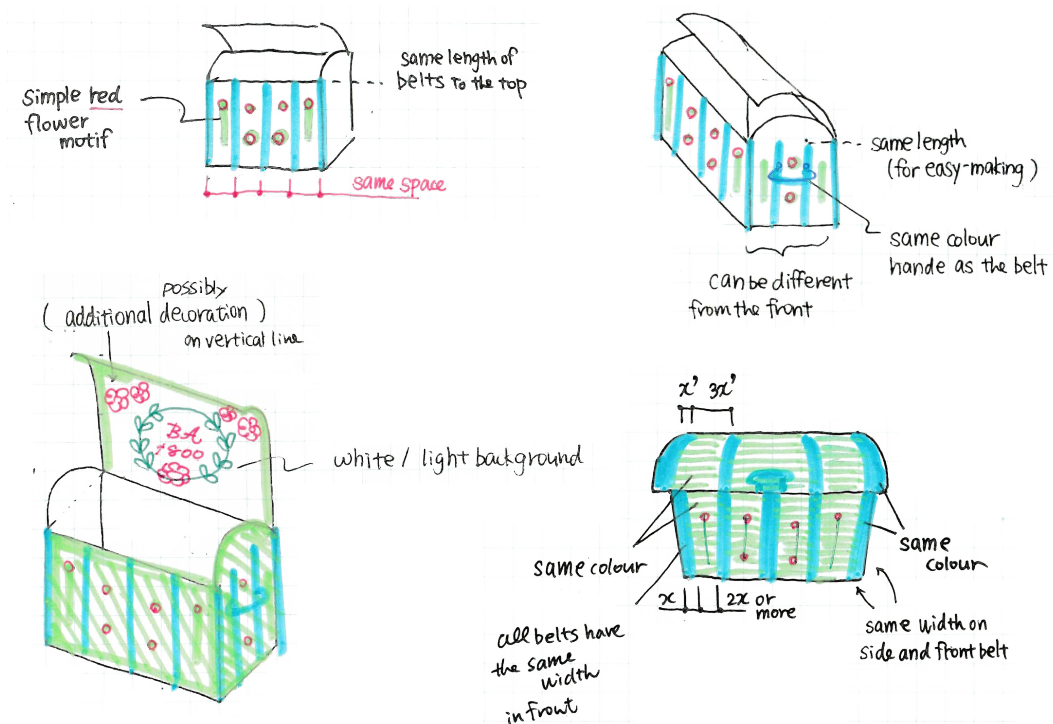 simple red
flower
motif
same length of
belts to the top
same space
same length
(for easy-making)
same colour
hande as the belt
can be different
from the front
possibly
( additional decoration )
on vertical line
BA
1800
white / light background
x' 3x'
same colour
same
colour
x 2x or
more
all belts have
the same
width
in front
same width on
side and front belt